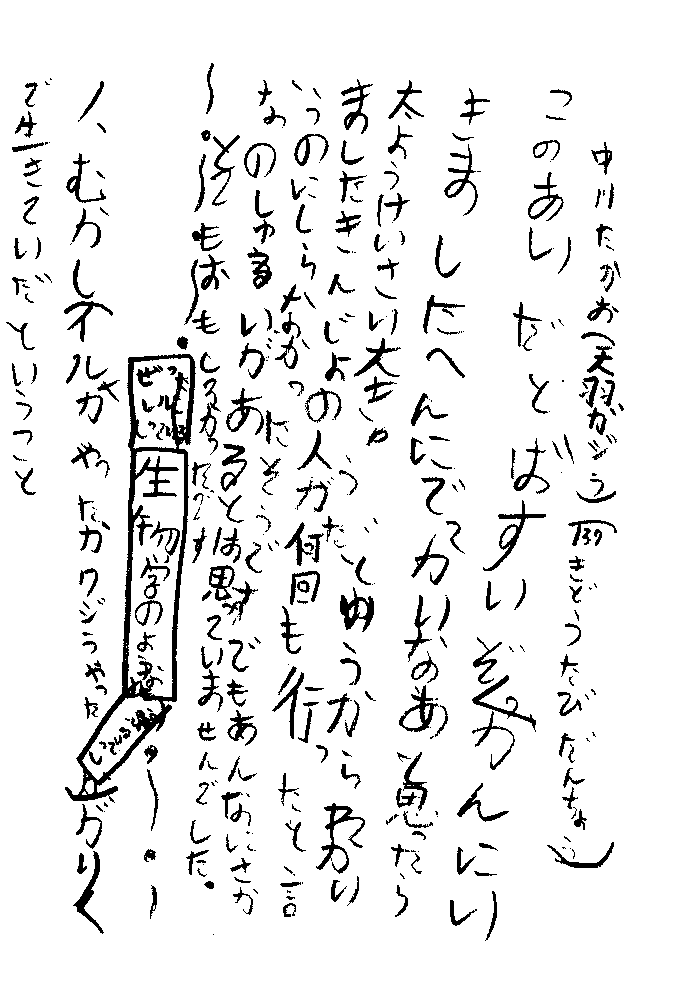 中川たかお(天羽ガジラ)(139きどうたびだんちょう)
このあいだとばすいぞくかんにい
きましたへんにでっかいなあと思ったら
太ようけいさい大きゅうだとゆうからわかり
ましたきんじょの人が何回も行ったと言
うのにしらなかったそうですでもあんなにさか
なのしゅ類いがあるとは思っていませんでした。
〜。とてもおもしろかったです
生物学のような
1、むかしイルカやったカクジラやったがりく
で生きていだということ